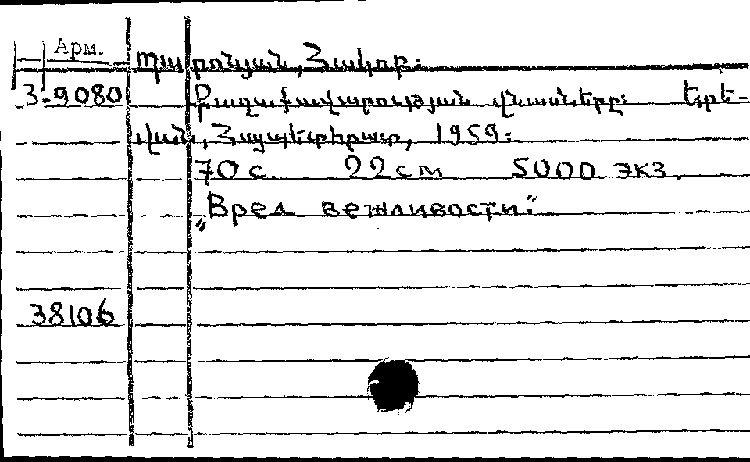 Арм.
Պարոնյան, Հակոբ։
3-9080 Քաղաքավարության վնասները։ Երե-
վան, Հայպետհրատ, 1959։
70 с. 22 см 5000 экз.
„Вред вежливости“
38106